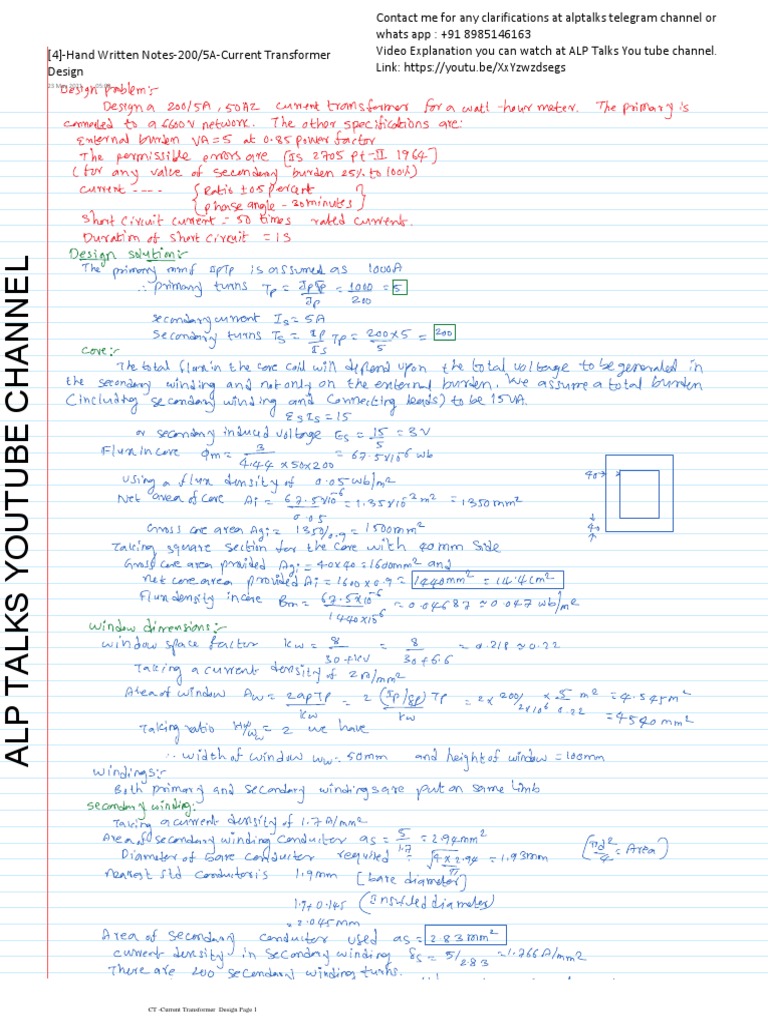 Contact me for any clarifications at alptalks telegram channel or
whats app : +91 8985146163
Video Explanation you can watch at ALP Talks You tube channel.
Link: https://youtu.be/XxYzwzdsegs
[4]-Hand Written Notes-200/5A-Current Transformer
Design
ALP TALKS YOUTUBE CHANNEL
Design Problem:-
Design a 200/5A, 50HZ current transformer for a watt-hour meter. The primary is
connected to a 6600V network. The other specifications are:
External burden VA = 5 at 0.85 power factor
The permissible errors are [IS 2705 Pt-II 1964]
(for any value of secondary burden 25% to 100%)
Current ---- { Ratio ±0.5 percent }
{ phase angle - 30 minutes }
Short circuit current = 50 times rated currents.
Duration of short circuit = 1S
Design solution:-
The primary mmf IpTp is assumed as 1000A
∴ primary turns Tp = IpTp/Ip = 1000/200 = 5
Secondary current Is = 5A
Secondary turns Ts = Ip/Is Tp = 200×5/5 = 200
Core:-
The total flux in the core coil will depend upon the total voltage to be generated in
the secondary winding and not only on the external burden. We assume a total burden
(including secondary winding and connecting leads) to be 15VA.
EsIs = 15
or secondary induced voltage Es = 15/5 = 3V
Flux in core Φm = 3/4.44×50×200 = 67.5×10⁻⁶ wb
using a flux density of 0.05 wb/m²
Net area of core Ai = 67.5×10⁻⁶/0.05 = 1.35×10⁻³ m² = 1350mm²
Gross core area Agi = 1350/0.9 = 1500mm²
Taking square section for the core with 40mm side
Gross core area provided Agi = 40×40 = 1600mm² and
net core area provided Ai = 1600×0.9 = 1440mm² = 14.4cm²
Flux density in core Bm = 67.5×10⁻⁶/1440×10⁻⁶ = 0.04687 ≈ 0.047 wb/m²
40
40
Window dimensions:-
Window space factor Kw = 8/30+kV = 8/30+6.6 = 0.218 ≈ 0.22
Taking a current density of 2A/mm²
Area of window Aw = 2apTp/Kw = 2 (Ip/δp) Tp/Kw = 2× 200/2×10⁶ × 5/0.22 m² = 4.545m²
= 4540mm²
Taking ratio Hw/Ww = 2 we have
∴ width of window Ww = 50mm and height of window = 100mm
Windings:-
Both primary and secondary windings are put on same limb
Secondary winding:
Taking a current density of 1.7A/mm²
Area of secondary winding conductor as = 5/1.7 = 2.94mm²
Diameter of bare conductor required = √4×2.94/π = 1.93mm (πd²/4 = Area)
Nearest std conductor is 1.9mm [bare diameter]
1.9+0.145 (Insulated diameter)
= 2.045mm
Area of secondary conductor used as = 2.83mm²
current density in secondary winding δs = 5/2.83 = 1.766A/mm²
There are 200 secondary winding turns.
CT -Current Transformer Design Page 1